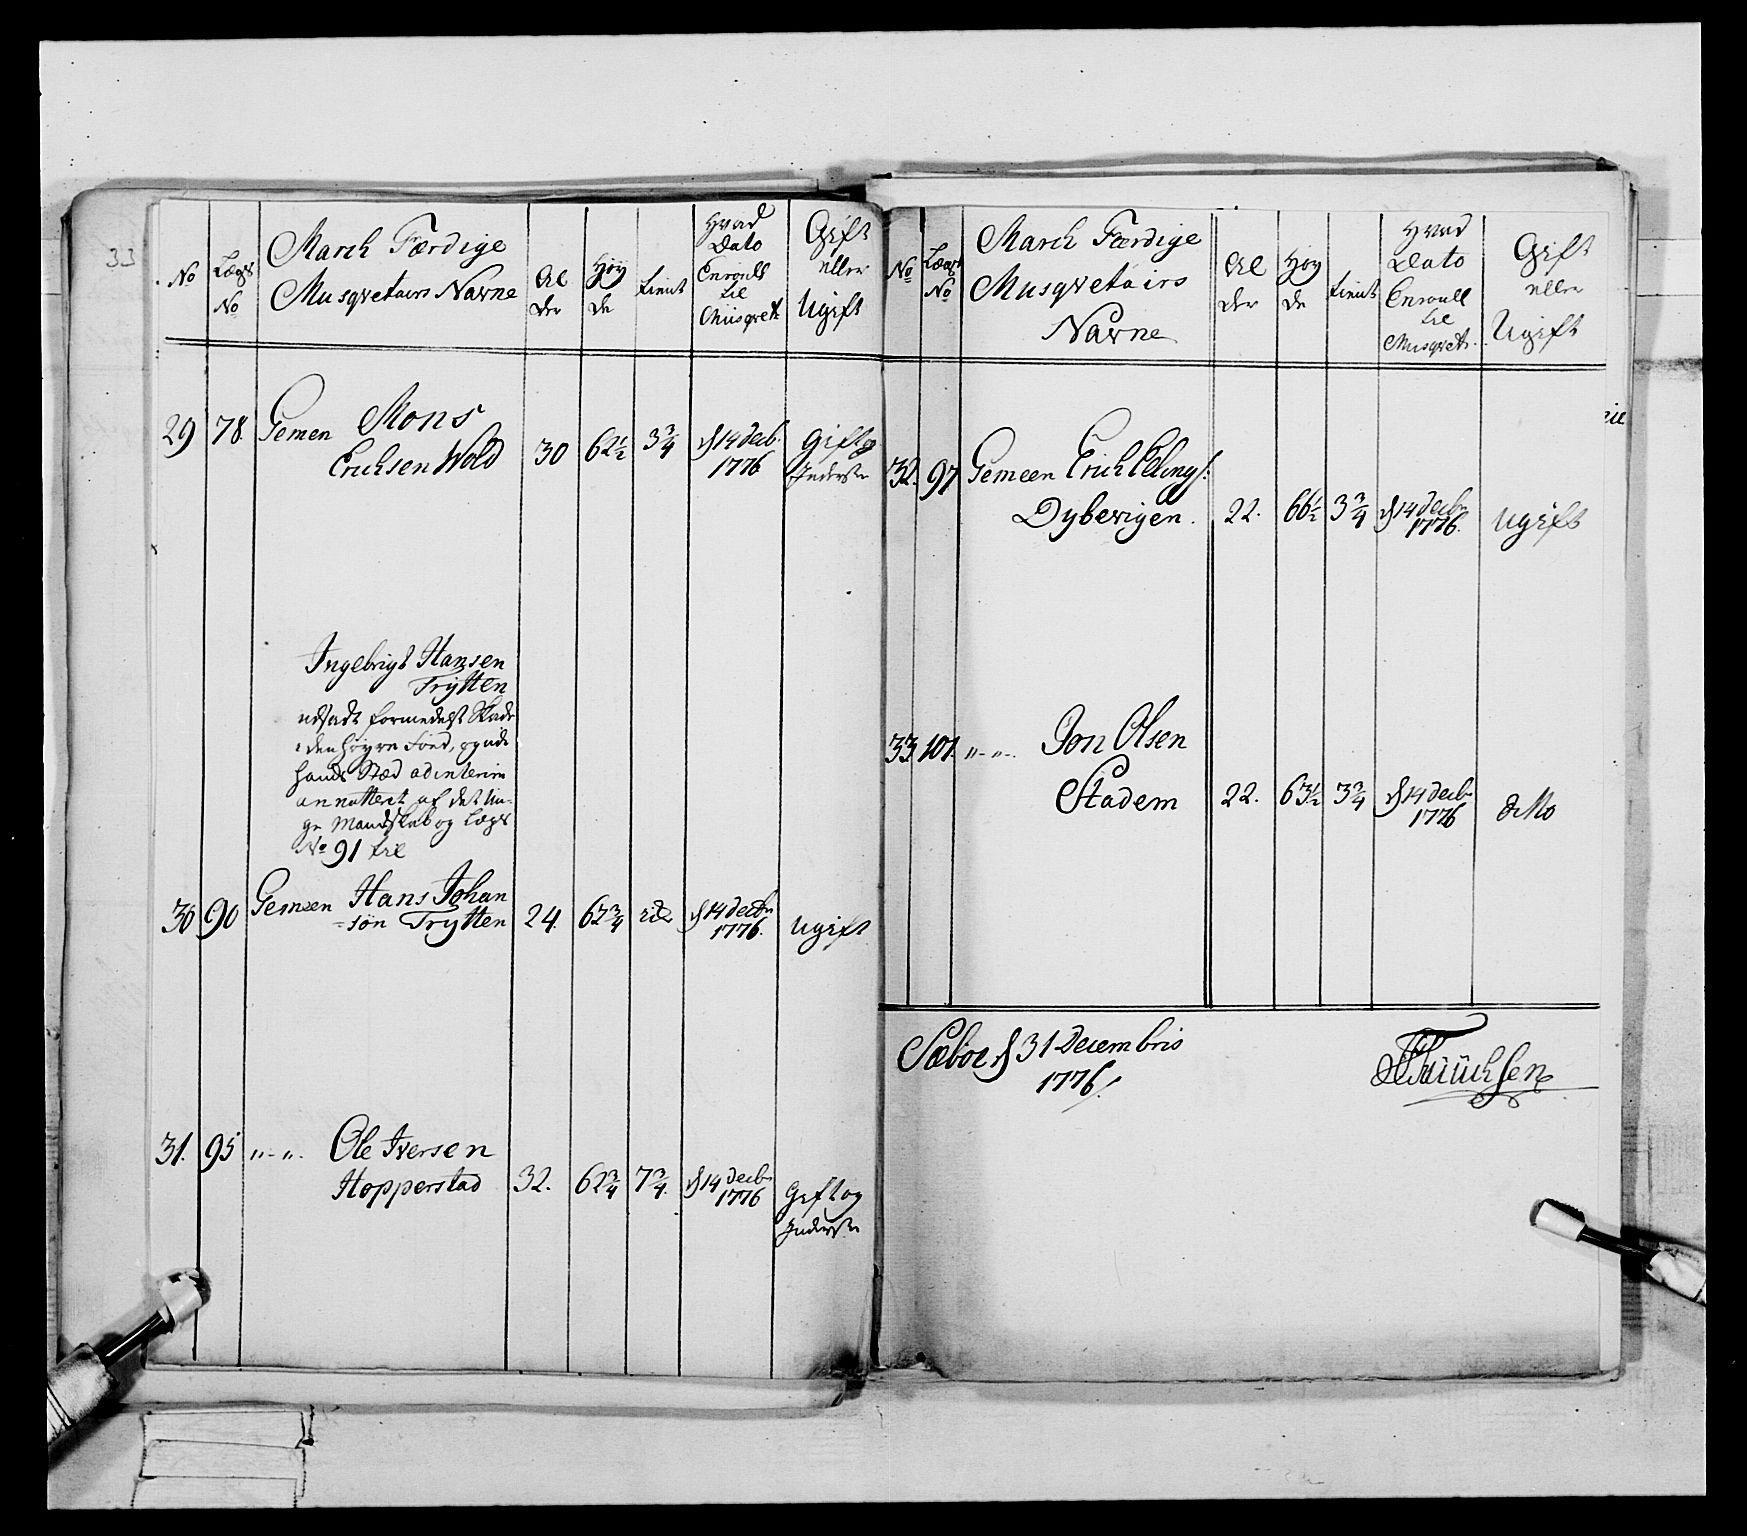 33
No
Lægs
No
March Færdige
Musqvetairs Navne
Al
der
Høy
de
tient
Hvad
Dato
Enroull
til
Musqvet
Gift
eller
Ugift
29 78. Gemen Mons
Erichsen Wold 30 62½ 3¾ d 14 decb. 1776 Gift og
Inderste
Ingebrigt Hansen
Trytten
udsadt formedelst Skade
i den høyre Foed, og udi
hands Stæd ad interim
annotteret af det Un-
ge Mandskab og Lægs
No 91 til
30 90 Gemeen Hans Johan
-søn Trytten 24. 62¾ d 14 decbr 1776. Ugift
31. 95 „-„. Ole Iversen
Hopperstad 32. 62¾ 7¾. d 14 decbr 1776 Gift og
Inderste
No
Lægs
No
March Færdige
Musqvetairs
Navne
Al
der
Høy
de
tient
Hvad
Dato
Enroull
til
Musqvet.
Gift
eller
Ugift
32. 97 Gemeen Erich Elling s:
Dybevigen. 22. 66½ 3¾ d 14 decbr 1776. Ugift
33 101. „-„-. Jon Olsen
Stadem 22. 63½ 3¾ d 14 decbr 1776 ditto
Sæboe d 31 Decembris
1776.